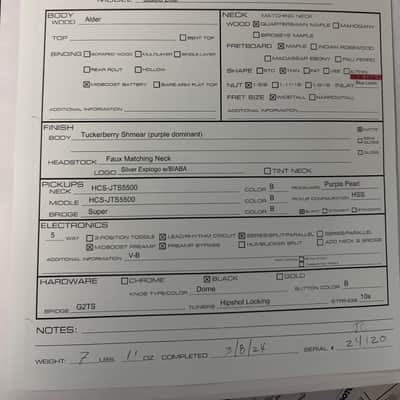 BODY
WOOD Alder
TOP BENT TOP
BINDING MULTILAYER SINGLE LAYER
REAR ROUT HOLLOW
MIDBOOST BATTERY BARE-ARM FLAT TOP
ADDITIONAL INFORMATION
NECK MATCHING NECK
WOOD QUARTERSAWN MAPLE MAHOGANY
BIRDSEYE MAPLE
FRETBOARD MAPLE INDIAN ROSEWOOD
MACASSAR EBONY PAU FERRO
SHAPE STD THIN FAT
NUT 1-5/8 1-11/16 INLAY
FRET SIZE WIDE/TALL NARROW/TALL
ADDITIONAL INFORMATION
FINISH
BODY Tuckerberry Shmear (purple dominant) MATTE
SEMI GLOSS
GLOSS
HEADSTOCK Faux Matching Neck
LOGO Silver Explogo w/B/ABA TINT NECK
PICKUPS
NECK HCS-JTS5500 COLOR B PICKGUARD Purple Pearl
MIDDLE HCS-JTS5500 COLOR B PICKUP CONFIGURATION HSS
BRIDGE Super COLOR B SLANT
ELECTRONICS
5 WAY 2-POSITION TOGGLE LEAD/RHYTHM CIRCUIT SERIES/SPLIT/PARALLEL SERIES/PARALLEL
MIDBOOST PREAMP PREAMP BYPASS HUMBUCKER SPLIT ADD NECK & BRIDGE
ADDITIONAL INFORMATION V-B
HARDWARE CHROME BLACK GOLD
KNOB TYPE/COLOR Dome BUTTON COLOR B
BRIDGE G2TS TUNERS Hipshot Locking STRINGS 10s
NOTES:
WEIGHT: 7 LBS. 11 OZ COMPLETED 3/8/24 SERIAL # 24120